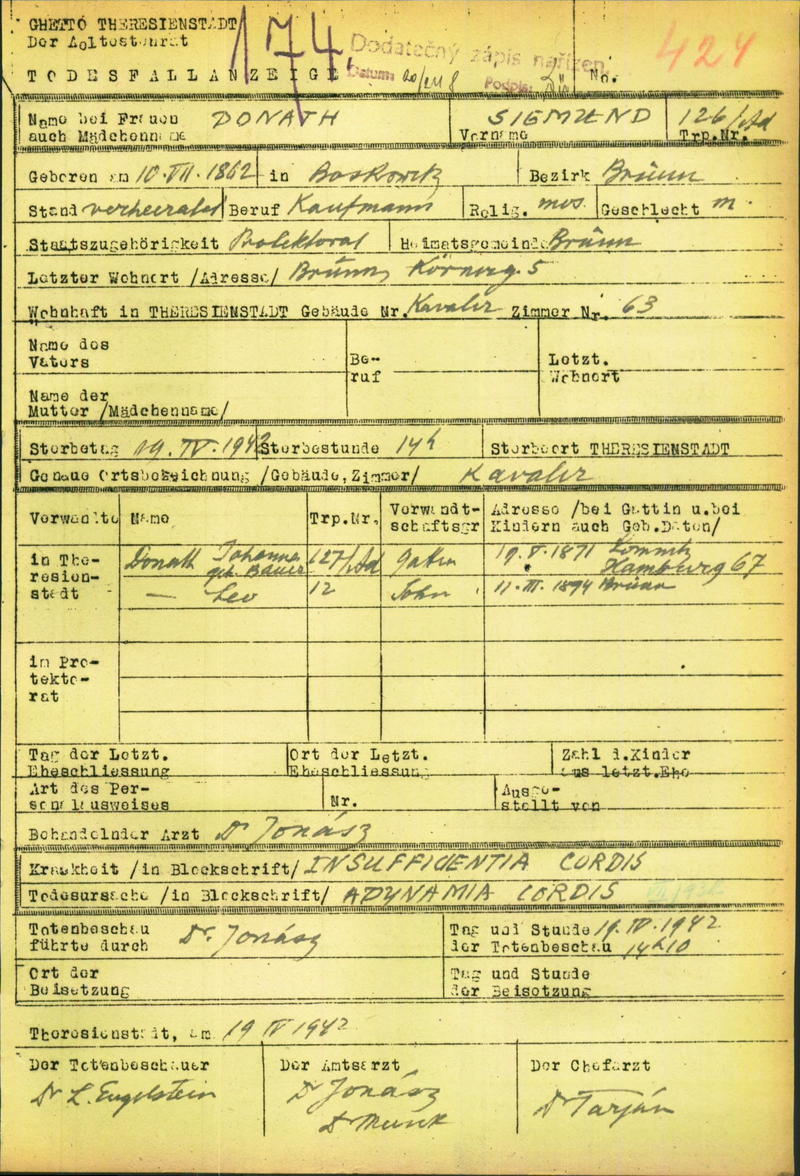 GHETTO THERESIENSTADT
Der Aeltestenrat
174
Dodatečný zápis nařízen
Datum: Podpis:
424
TODESFALLANZEIGE No.
Name bei Frauen auch Mädchenname DONATH
SIEGMUND Vorname
126/Ad Trp.Nr.
Geboren am 10.VII.1862 in Boskowitz Bezirk Brünn
Stand verheiratet Beruf Kaufmann Relig. mos. Geschlecht m.
Staatszugehörigkeit Protektorat Heimatsgemeinde Brünn
Letzter Wohnort /Adresse/ Brünn, Körnerg. 5
Wohnhaft in THERESIENSTADT Gebäude Nr. Kavalir Zimmer Nr. 63
Name des Vaters
Beruf
Letzt. Wohnort
Name der Mutter /Mädchenname/
Sterbetag 19.IV.1942 Sterbestunde 14h Sterbeort THERESIENSTADT
Genaue Ortsbezeichnung /Gebäude, Zimmer/ Kavalir
Verwandte Name Trp.Nr. Verwandt-schaftsgr Adresse /bei Gattin u.bei Kindern auch Geb.Daten/
in The-resien-stadt
Donath Johanna geb. Bauer 127/Ad Gattin 19.V.1871 Lomnitz Hamburg 67
— Leo 12 Sohn 11.III.1894 Brünn
in Pro-tekto-rat
Tag der Letzt. Eheschliessung
Ort der Letzt. Eheschliessung
Zahl d.Kinder aus letzt.Ehe
Art des Per-sonalausweises
Nr.
Ausge-stellt von
Behandelnder Arzt Dr Jonász
Krankheit /in Blockschrift/ INSUFFICIENTIA CORDIS
Todesursache /in Blockschrift/ ADYNAMIA CORDIS
Totenbeschau führte durch Dr. Jonász
Tag und Stunde der Totenbeschau 19.IV.1942 14h10
Ort der Beisetzung
Tag und Stunde der Beisetzung
Theresienstadt, am 19 IV 1942
Der Totenbeschauer Der Amtsarzt Der Chefarzt
Dr L. Engelstein Dr Jonász Dr Tarján
Dr Munk